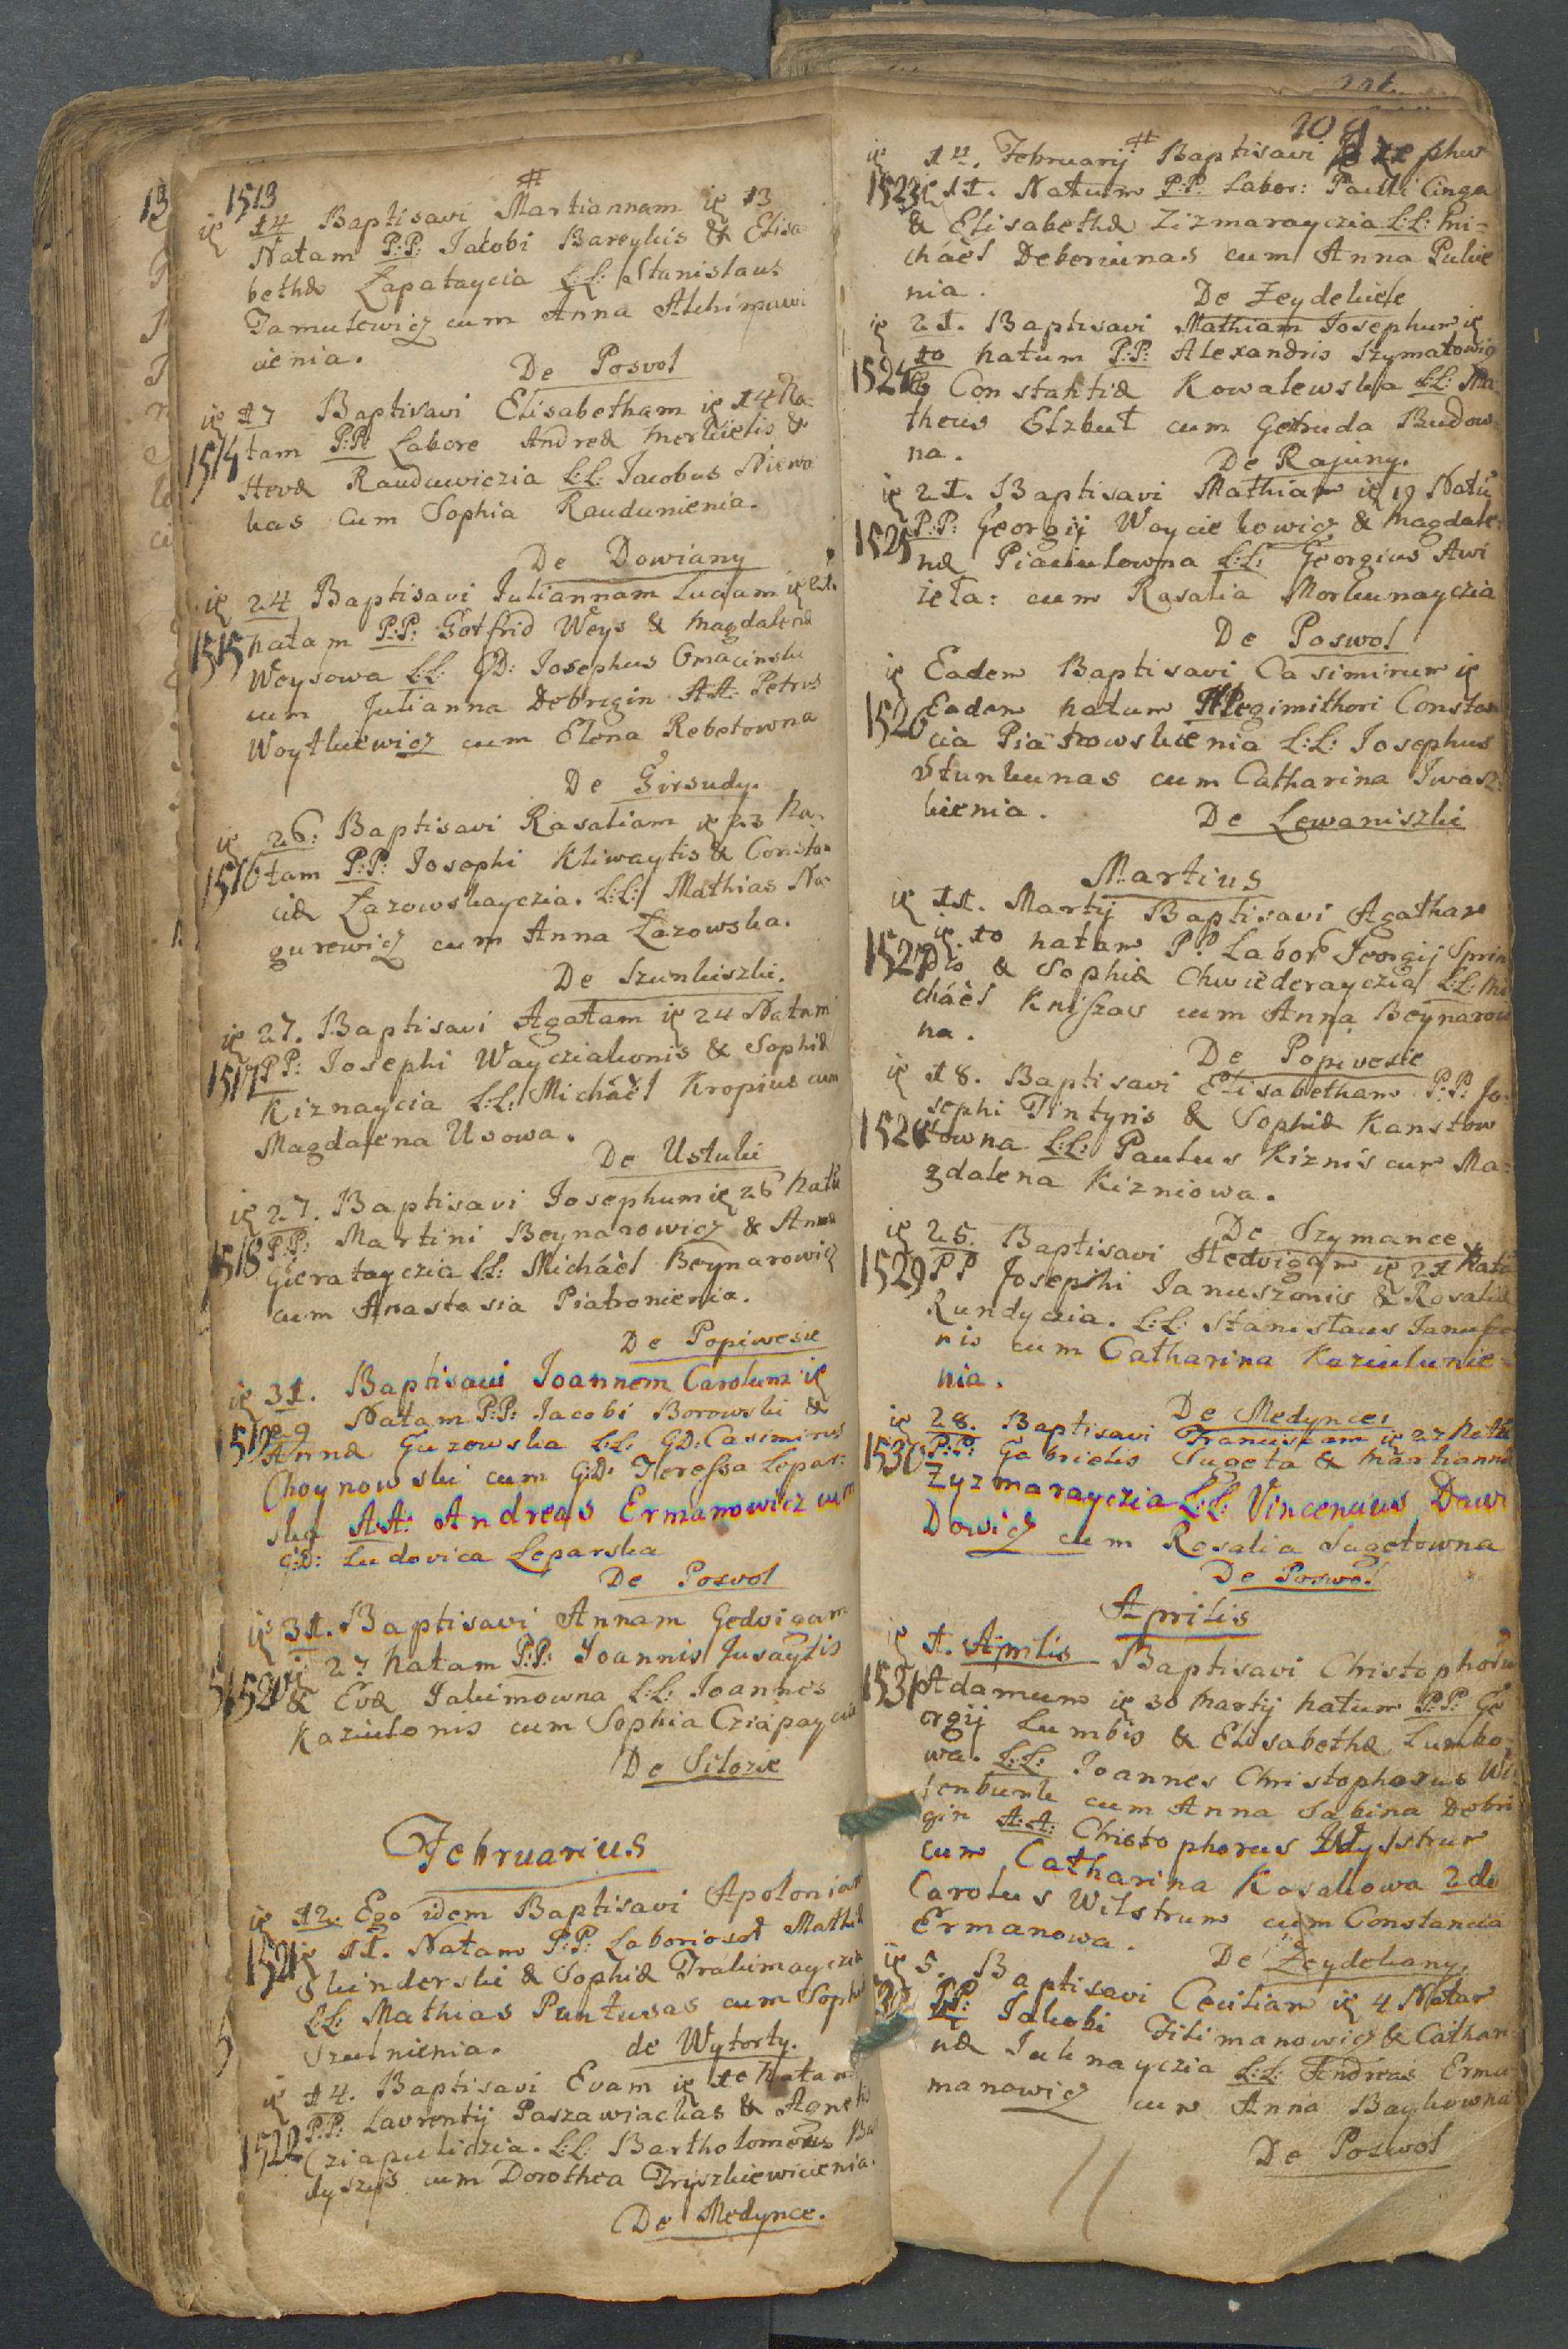 1513
14 Baptisavi Martiannam 13
Natam P:P: Jacobi Bareykis & Elisa
bethæ Zapataycia L:L: Stanislaus
Jamulewicz cum Anna
cienia.
De Posvol
17 Baptisavi Elisabetham 14 Na:
1514 tam P:P: Labore Andreæ Merkielis &
Hevæ Rauduwiczia L:L: Jacobus Niewa
kas Cum Sophia Raudunienia.
De Dowiany
24 Baptisavi Juliannam Luciam 21.
1515 Natam P:P: Gotfrid Weys & Magdalenæ
Weysowa L:L: GD: Josephus Omacinski
cum Julianna Debrigin A:A: Petrus
Woytkiewicz cum Elena Rebetowna
De Girsudy.
26: Baptisavi Rasaliam 23 Na.
1516 tam P:P: Josephi Kliwaytis & Constan
ciæ Lazowskayczia. L:L: Mathias Na:
gurewicz cum Anna Lazowska.
De Szunkiszki.
27. Baptisavi Agatam 24 Natam
1517 P:P: Josephi Wayczialionis & Sophiæ
Kiznaycia L:L: Micháèl Kropius cum
Magdalena Usowa.
De Ustuki
27. Baptisavi Josephum 26 Natū
1518 P:P: Martini Beynarowicz & Annæ
Gieratayczia L:L: Micháèl Beynarowicz
cum Anastasia Piatronienia.
De Popiwesie
31. Baptisavi Joannem Carolum
1519 29 Natam P:P: Jacobi Borowski &
Annæ Guzowska L:L: GD: Casimirus
Choynowski cum G:D: Teressa Lepar:
ska A:A: Andreas Ermanowicz cum
G:D: Ludovica Leparska
De Posvol
31. Baptisavi Annam Gedvigam
1520 27 Natam P:P: Joannis Jusaytis
& Evæ Jakimowna L:L: Joannes
Kaziulonis cum Sophia Cziapaycia
De Silozie
Februarius
12. Ego idem Baptisavi Apoloniam
1521 11. Natam P:P: Laborioso Mathiæ
Skinderski & Sophiæ Trakimayczia
L:L: Mathias Puntusas cum Sophia
Szulnienia.
de Wytorty.
14. Baptisavi Evam 10 Natam
1522 P:P: Laurentij Paszawiackas & Agnetis
Cziapulidzia. L:L: Bartholomeus Ba
dyszys cum Dorothea Tryszkiewicienia.
De Medynce.
109
1 Februarij Baptisavi
1523 11. Natum P:P: Labor: Pauli Cinga
& Elisabethæ Zizmarayczia L:L: Mi=
cháèl Deboriunas cum Anna Pulvie
nia.
De Zeydekiele
21. Baptisavi Mathiam Josephum
10 Natum P:P: Alexandris Szymatowicz
1524 & Constantiæ Kowalewska L:L: Ma
theus Elzbut cum Getruda Budow
na.
De Rajuny.
21. Baptisavi Mathiam 19 Natū
1525 P:P: Georgij Woyciekowicz & Magdale:
næ Piaciulowna L:L: Georgius Awi
ieta: cum Rasalia Morkunayczia
De Poswol
Eadem Baptisavi Casimirum
1526 Eadem Natum Constan
cia Piatrowskienia L:L: Josephus
Stunkunas cum Catharina Iwasz:
kienia.
De Lewaniszki
Martius
11. Martij Baptisavi Agatham
1527 10 Natam P:P: Labor Georgij Sprin
dis & Sophiæ Chwiederayczia L:L: Mi
cháèl Kniszas cum Anna Beynarow
na.
De Popivesie
18. Baptisavi Elisabetham P:P: Jo:
sephi Tintyris & Sophiæ Kanstow
1528 towna L:L: Paulus Kiznis cum Ma:
gdalena Kizniowa.
De Szymance
25. Baptisavi Hedvigam 21 Natā
1529 PP Josephi Januszonis & Rosaliæ
Rundyczia. L:L: Stanislaus Janusze
nis cum Catharina Kaziulunie
nia.
De Medynce
28. Baptisavi Franciscam 27 Natā
1530 P:P: Gabrielis Sugeta & Martiannæ
Zyzmarayczia L:L: Vincencius Dawi
Dowicz cum Rosalia Sugetowna
De Poswol
Aprilis
1. Aprilis Baptisavi Christophorū
1531 Adamum 30 Martij Natum P:P: Ge
orgij Lumbis & Elisabethæ Lumbo:
wa. L:L: Joannes Christophorus Wi
tenburk cum Anna Sabina Debri
gin A:A: Christophorus Wilstrum
cum Catharina Kosakowa 2do
Carolus Wilstrum cum Constancia
Ermanowa.
De Zeydekany.
5. Baptisavi Ceciliam 4 Natam
32 P:P: Jakobi Filimanowicz & Cathari
næ Juknayczia L:L: Andreas Erma
manowicz cum Anna Baykowna
De Poswol